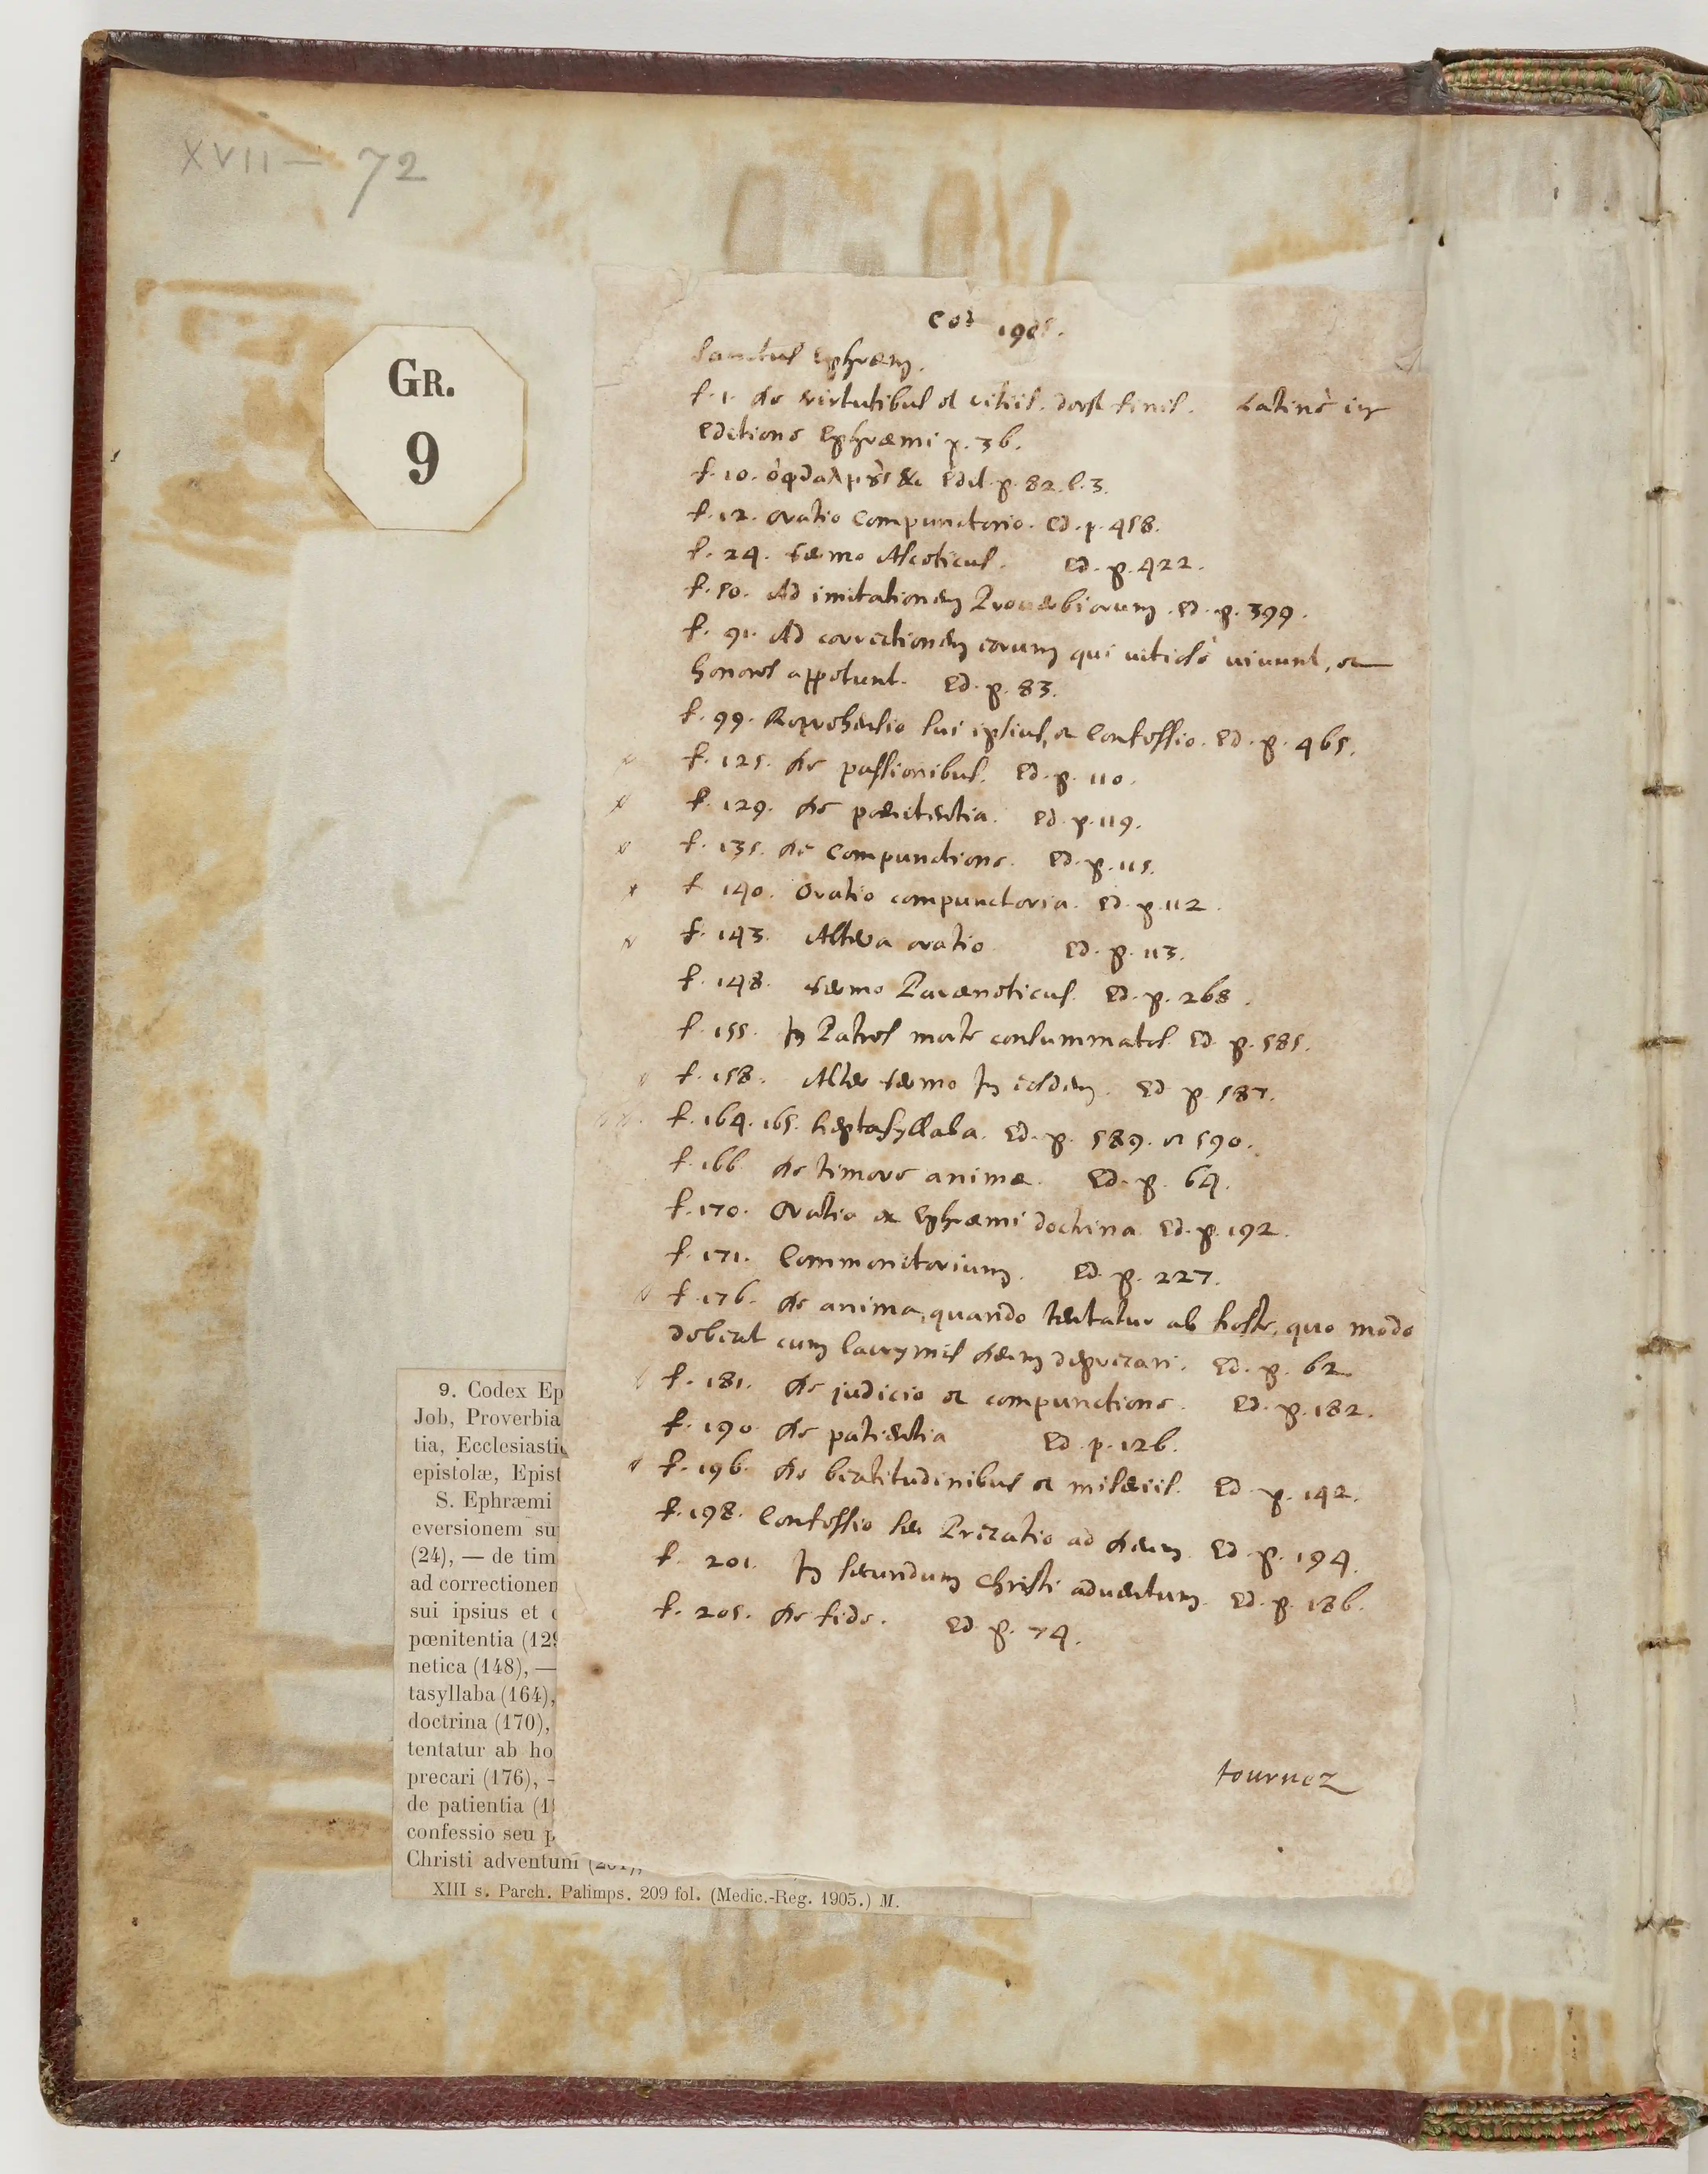 XVII — 72
GR.
9
Cod 1905.
Sanctus Ephræm.
f. 1. de virtutibus et vitiis. deest finis. Latinè in
Editione Ephræmi p. 36.
f. 10. &c Edit. p. 82. l. 3.
f. 12. Oratio compunctorio. Ed. p. 458.
f. 24. Sermo Asceticus. Ed. p. 422.
f. 80. Ad imitationem Proverbiorum. Ed. p. 399.
f. 91. Ad correctionem eorum qui vitiosè vivunt, et
honores appetunt. Ed. p. 83.
f. 99. Reprehensio sui ipsius, et Confessio. Ed. p. 465.
f. 125. de passionibus. Ed. p. 110.
f. 129. de pœnitentia. Ed. p. 119.
f. 135. de compunctione. Ed. p. 115.
f. 140. Oratio compunctoria. Ed. p. 112.
f. 143. Altera oratio Ed. p. 113.
f. 148. Sermo Paræneticus. Ed. p. 268.
f. 155. In Patres morte consummatos. Ed. p. 585.
f. 158. Alter Sermo In eosdem. Ed p. 587.
f. 164. 165. heptasyllaba. Ed. p. 589. et 590.
f. 166 de timore animæ. Ed. p. 64.
f. 170. Oratio ex Ephræmi doctrina Ed. p. 192.
f. 171. Commonitorium. Ed. p. 227.
f. 176. de anima, quando tentatur ab hoste, quo modo
debeat cum lacrymis deum deprecari. Ed. p. 62.
f. 181. de judicio et compunctione. Ed. p. 182.
f. 190. de patientia Ed. p. 126.
f. 196. de beatitudinibus et miseriis. Ed. p. 142.
f. 198. Confessio seu Precatio ad deum. Ed. p. 194.
f. 201. In secundum Christi adventum. Ed. p. 186.
f. 205. de fide. Ed. p. 74.
tournez
9. Codex Ep
Job, Proverbia
tia, Ecclesiasti
epistolæ, Epist
S. Ephræmi
eversionem su
(24), — de tim
ad correctionem
sui ipsius et
pœnitentia (129
netica (148), —
tasyllaba (164),
doctrina (170),
tentatur ab ho
precari (176), -
de patientia (1
confessio seu p
Christi adventum (201),
XIII s. Parch. Palimps. 209 fol. (Medic.-Reg. 1905.) M.